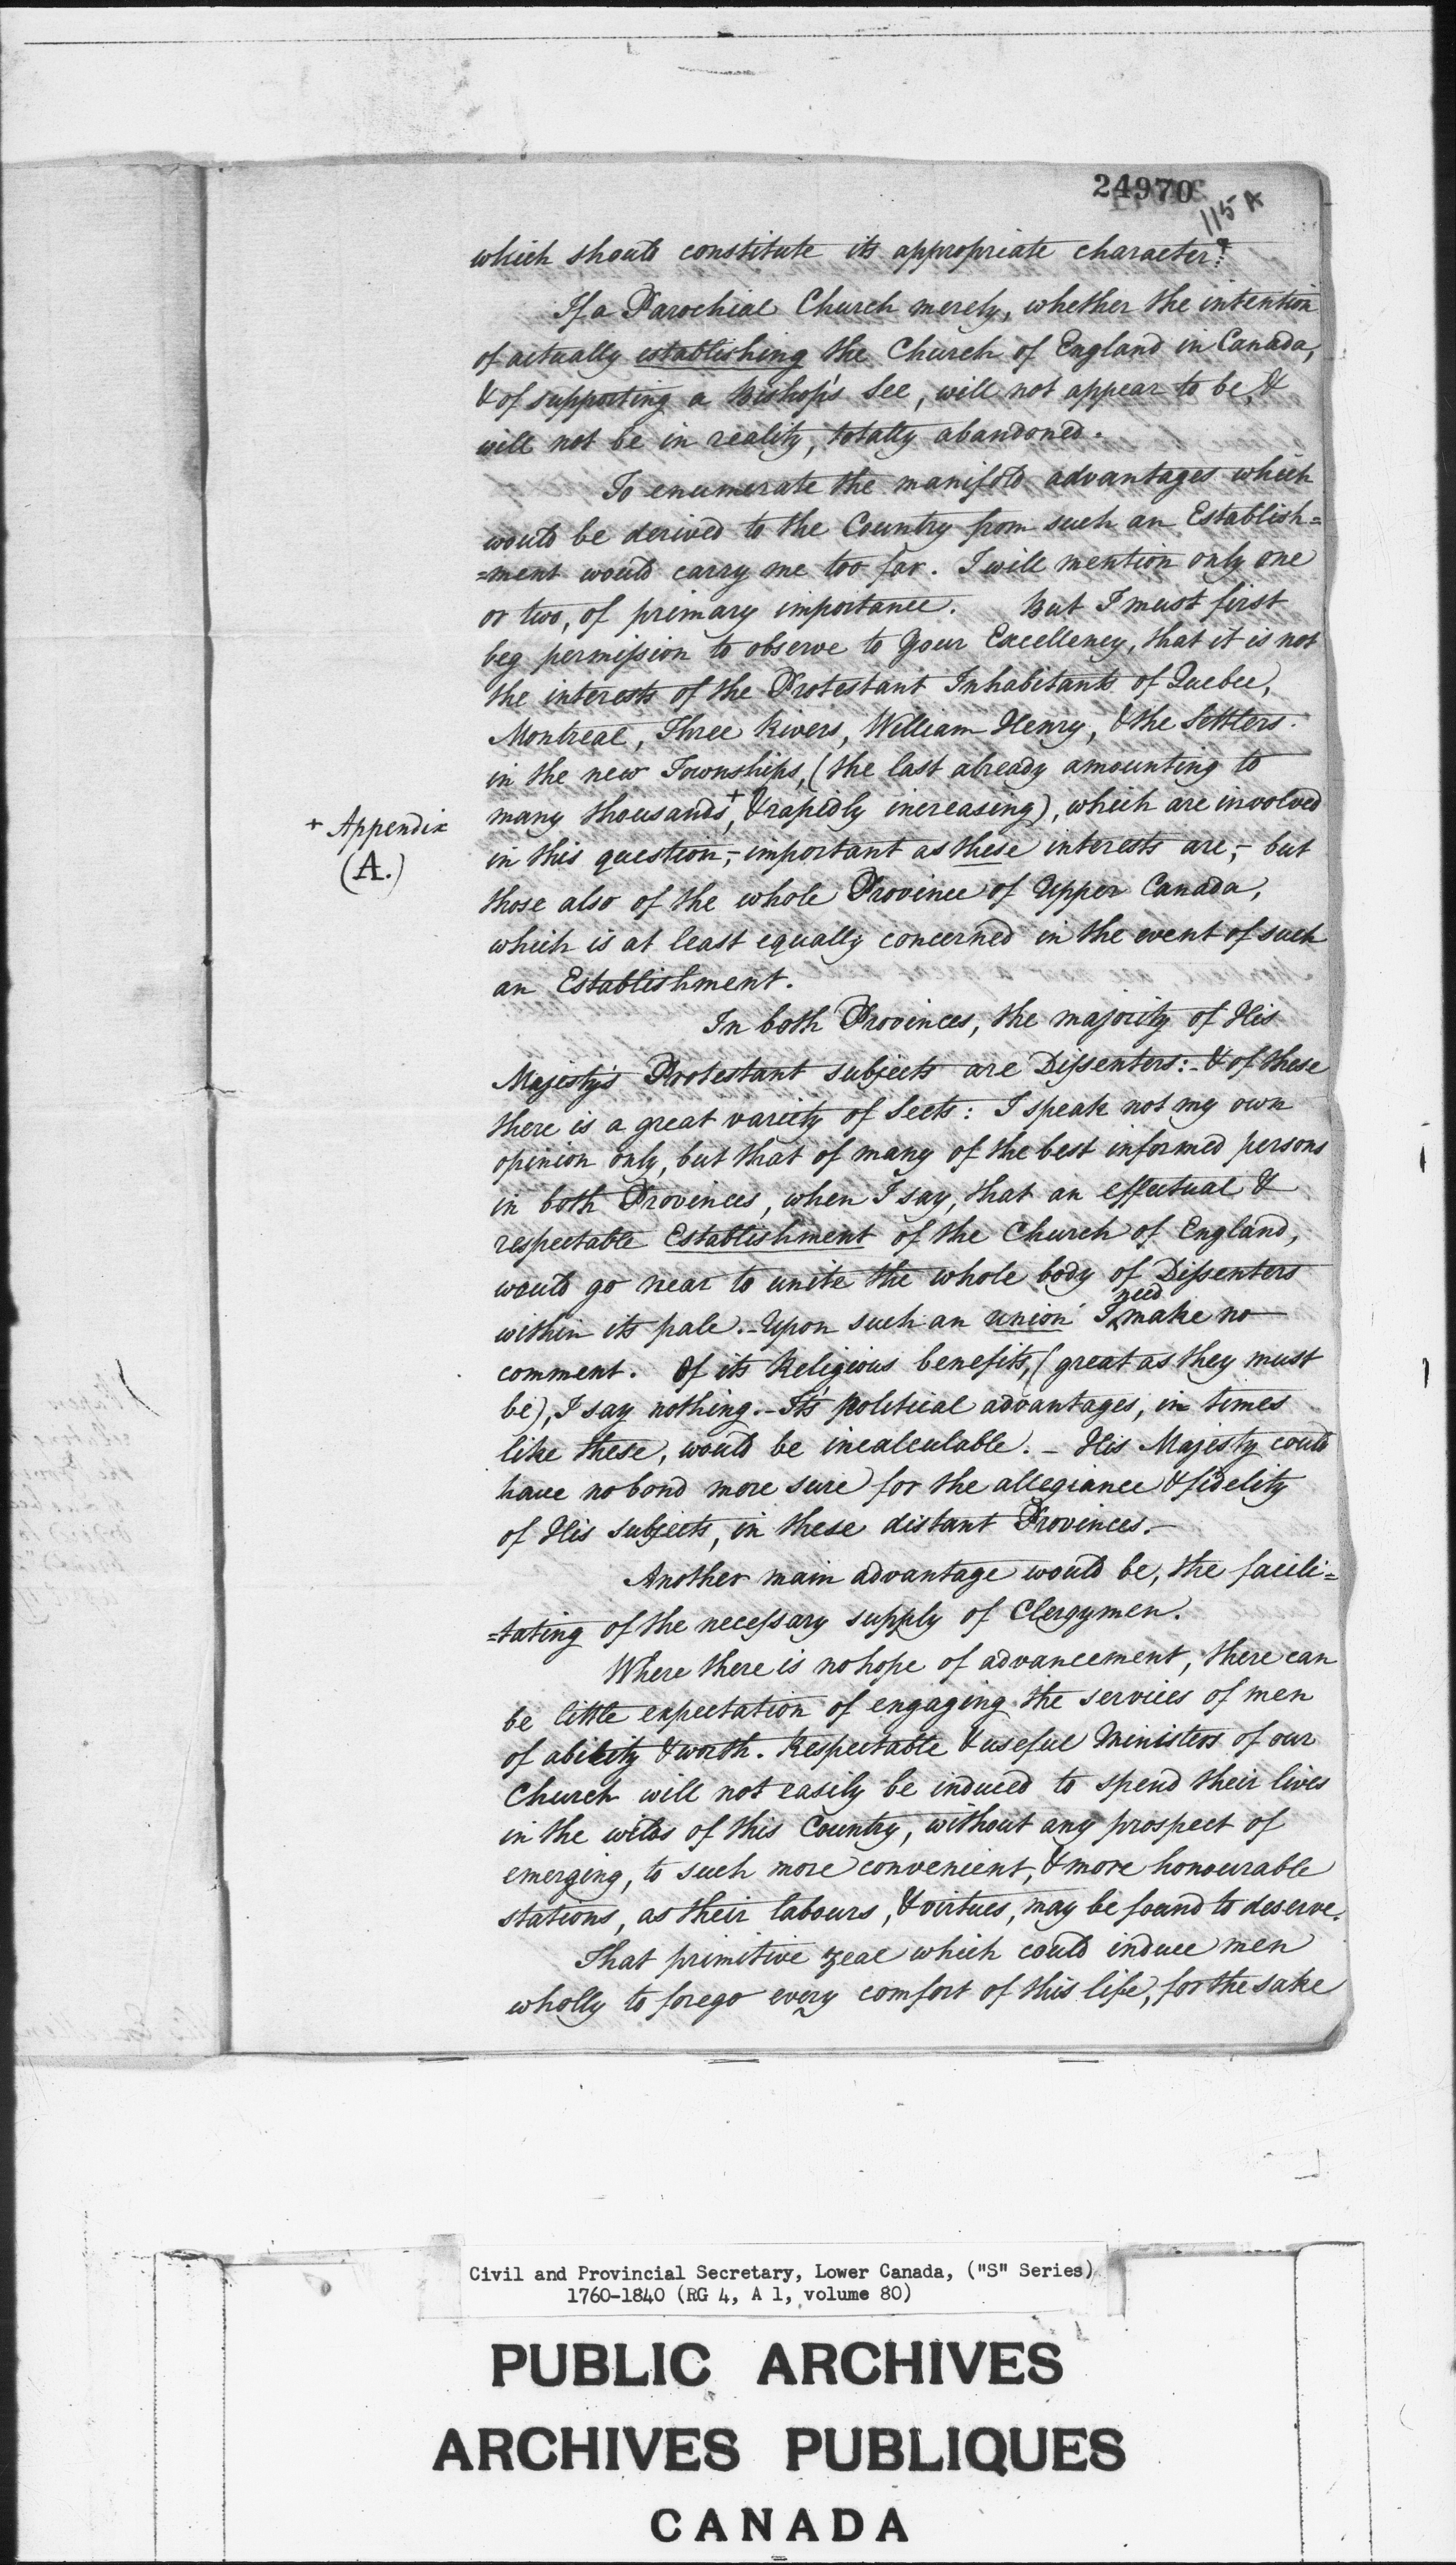 24970
115 A
which should constitute its appropriate character?
If a Parochial Church merely, whether the intention
of actually establishing the Church of England in Canada,
& of supporting a Bishop's See, will not appear to be, &
will not be in reality, totally abandoned.
To enumerate the manifold advantages which
would be derived to the Country from such an Establish=
=ment would carry me too far. I will mention only one
or two, of primary importance. But I must first
beg permission to observe to Your Excellency, that it is not
the interests of the Protestant Inhabitants of Quebec,
Montreal, Three Rivers, William-Henry, & the Settlers
in the new Townships, (the last already amounting to
many thousands+, & rapidly increasing), which are involved
+ Appendix
(A.)
in this question,- important as these interests are,- but
those also of the whole Province of Upper Canada,
which is at least equally concerned in the event of such
an Establishment.
In both Provinces, the majority of His
Majesty's Protestant subjects are Dissenters:- & of these
there is a great variety of Sects: I speak not my own
opinion only, but that of many of the best informed persons
in both Provinces, when I say, that an effectual &
respectable Establishment of the Church of England,
would go near to unite the whole body of Dissenters
within its pale.- Upon such an union I need make no
comment. Of its Religious benefits, (great as they must
be), I say nothing.- It's political advantages, in times
like these, would be incalculable. - His Majesty could
have no bond more sure for the allegiance & fidelity
of His subjects, in these distant Provinces.-
Another main advantage would be, the facili=
=tating of the necessary supply of Clergymen.
Where there is no hope of advancement, there can
be little expectation of engaging the services of men
of ability & worth. Respectable & useful Ministers of our
Church will not easily be induced to spend their lives
in the wilds of this Country, without any prospect of
emerging, to such more convenient, & more honourable
stations, as their labours, & virtues, may be found to deserve.
That primitive zeal which could induce men
wholly to forego every comfort of this life, for the sake
Civil and Provincial Secretary, Lower Canada, ("S" Series)
1760-1840 (RG 4, A 1, volume 80)
PUBLIC ARCHIVES
ARCHIVES PUBLIQUES
CANADA